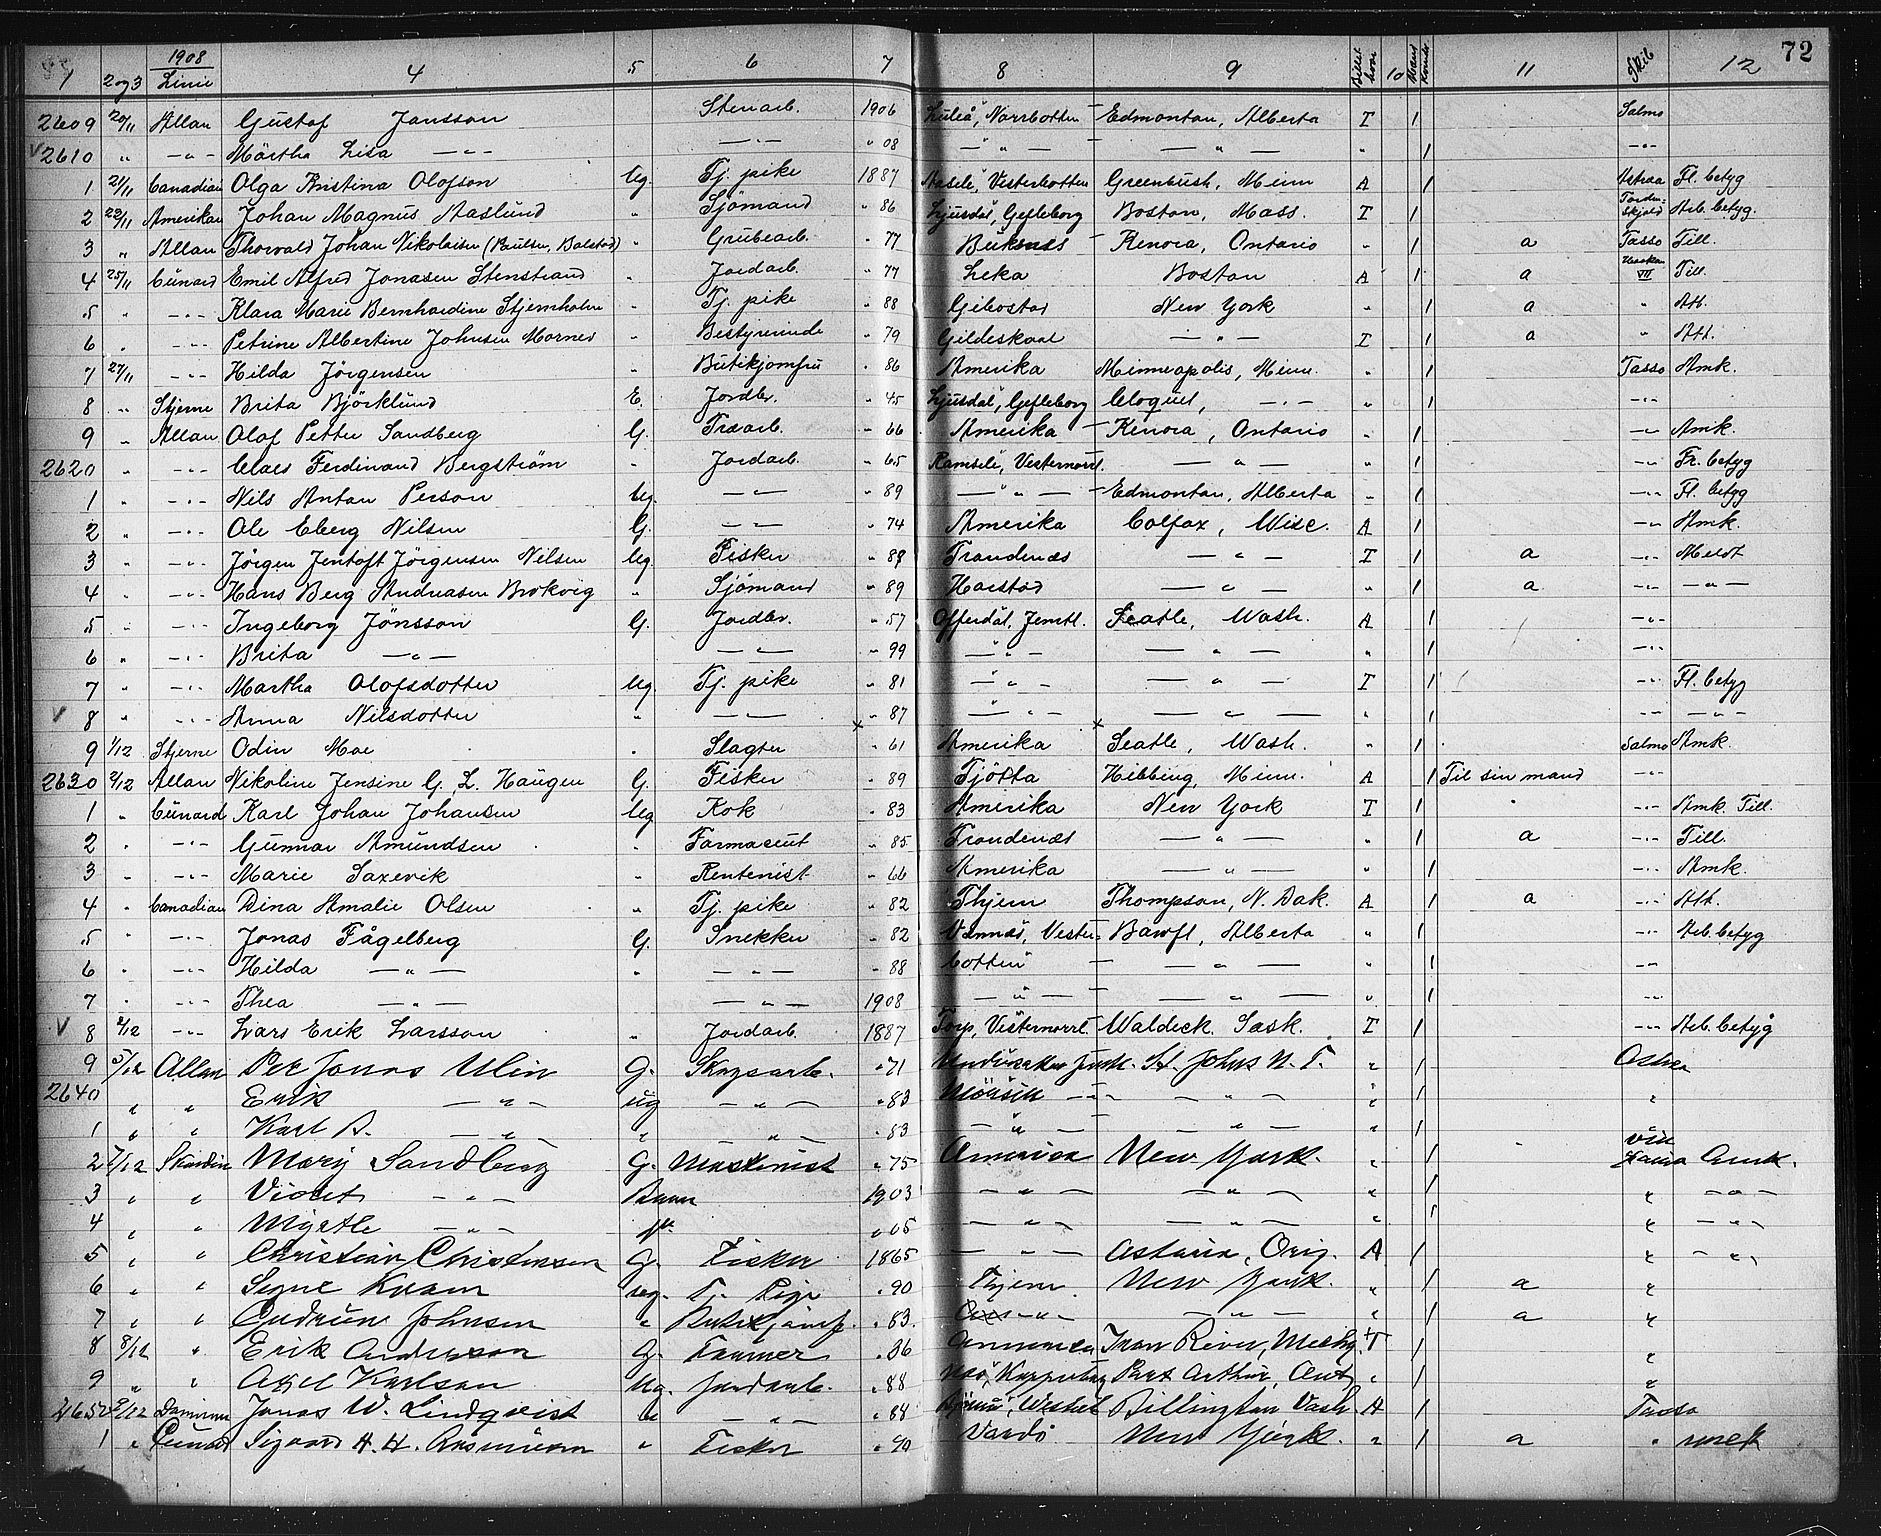 72
1908
1 2og3 Linie 4 5 6 7 8 9 10 11 Skib 12
2609 20/11 Allan Gustaf Jansson Stenarb. 1906 Luleå, Norrbotten Edmonton, Alberta I 1 Salmo
2610 " -"- Märtha Lisa -"- -"- " 08 -"- -"- " 1 -"-
1 21/11 Canadian Olga Kristina Olofson Ug. Tj. pike 1887 Aasele, Vesterbotten Greenbush, Minn A 1 Fl. betyg
2 22/11 Amerikan Johan Magnus Aaslund " Sjömand " 86 Ljusdal, Gefleborg Boston, Mass. I 1 Tordenskjold Arb. betyg.
3 " Allan Thorvald Johan Nikolaisen (Paulsen, Balstad) " Grubearb. " 77 Buksnes Kenora, Ontario " 1 a Tasso Till.
4 25/11 Cunard Emil Alfred Jonasen Stenstrand " Jordarb. " 77 Leka Boston A 1 a Haakon VII Till.
5 " -"- Klara Marie Bernhardine Stjernholm " Tj. pike " 88 Gibostad New York " 1 a " Att.
6 " -"- Petrine Albertine Johnsen Mornes " Bestyrerinde " 79 Gildeskaal -"- I 1 a " Att.
7 27/11 -"- Hilda Jörgensen " Butikjomfru " 86 Amerika Minneapolis, Minn. " 1 Tasso Amk.
8 " Stjerne Brita Björklund E. Jordbr. " 45 Ljusdal, Gefleborg Cloquet, -"- " 1 -"-
9 " Allan Olof Petter Sandberg G. Træarb. " 66 Amerika Kenora, Ontario " 1 -"- Amk.
2620 " -"- Claes Ferdinand Bergström " Jordarb. " 65 Ramsele, Vesternorrl. -"- " 1 -"- Fr. betyg
1 " -"- Nils Anton Person Ug. -"- " 89 -"- Edmonton, Alberta " 1 -"- Fl. betyg
2 " -"- Ole Eberg Nilsen G. -"- " 74 Amerika Colfax, Wisc. A 1 -"- Amk.
3 " -"- Jörgen Jentoft Jörgensen Nilsen Ug. Fisker " Trondenæs -"- I 1 a -"- Meldt
4 " -"- Hans Berg Andreasen Brokvig " Sjömand " 89 Harstad -"- " 1 a -"- -"-
5 " -"- Ingeborg Jönsson G. Jordbr. " 57 Offerdal, Jemtl. Seatle, Wash. A 1 -"-
6 " -"- Brita -"- -"- " 99 -"- -"- " 1 -"-
7 " -"- Martha Olofsdotter Ug. Tj. pike " 81 -"- -"- I 1 -"- Fl. betyg
8 " -"- Anna Nilsdotter " -"- " 87 -"- -"- " 1 -"- -"-
9 1/12 Stjerne Odin Moe " Slagter " 61 Amerika Seatle, Wash. " 1 Salmo Amk.
2630 2/12 Allan Nikoline Jensine G. L. Haugen G. Fisker " 89 Tjötta Hibbing, Minn. A 1 Til sin mand -"-
1 " Cunard Karl Johan Johansen Ug Kok " 83 Amerika New York I 1 -"- Amk. Till.
2 " -"- Gunnar Amundsen " Farmaceut " 85 Trondenæs -"- " 1 a -"- Till.
3 " -"- Marie Saxevik " Rentenist " 66 Amerika -"- " 1 -"- Amk.
4 " Canadian Dina Amalie Olsen " Tj. pike " 82 Thjem Thompson, N. Dak. A 1 a -"- Att.
5 " -"- Jonas Fågelberg G. Snekker " 82 Vännäs, Vester- Banff, Alberta " 1 -"- Arb. betyg
6 " -"- Hilda -"- " -"- " 88 botten -"- " 1 -"-
7 " -"- Thea -"- -"- 1908 -"- -"- " 1 -"-
8 2/12 -"- Lars Erik Larsson " Jordarb. 1887 Torp, Vesternorrl. Waldeck Sask. I 1 -"- Arb. betyg
9 5/12 Allan Per Jonas Ulin G. Skogsarb. " 71 Undersåker Jemtl. St. Johns N. F. " 1
2640 " " Erik -"- ug -"- " 83 -"- -"- " 1 "
1 " " Karl A. -"- " -"- " 83 -"- -"- " 1
2 7/12 Skandin Mary Sandberg G. Maskinist " 75 Amerika New York. " 1 Amk.
3 " " Violet -"- Barn 1903 -"- -"- " 1 " -"-
4 " " Myrtle -"- " 05 -"- -"- " 1 " -"-
5 " " Christian Christensen G. Fisker 1865 -"- Astoria, Orig. A 1 " -"-
6 " " Signe Kvam ug. Tj. Pige " 90 Thjem New York. " 1 a "
7 " " Gudrun Johnsen " Butikjomf. " 83 -"- -"- " 1 a "
8 8/12 " Erik Anderson G. Farmer " 86 Amerika Iron River, Mechg. I 1 "
9 " " Axel Karlson Ug. Jordarb. " 88 Kopperberg Port Arthur, Ont " 1 "
2650 9/12 Dominion Jonas W. Lindqvist " -"- " 84 Billington Vash A 1 Tasso
1 " Cunard Sigvard H. H. Rasmussen " Fisker " 90 Vardö New York. " 1 a "